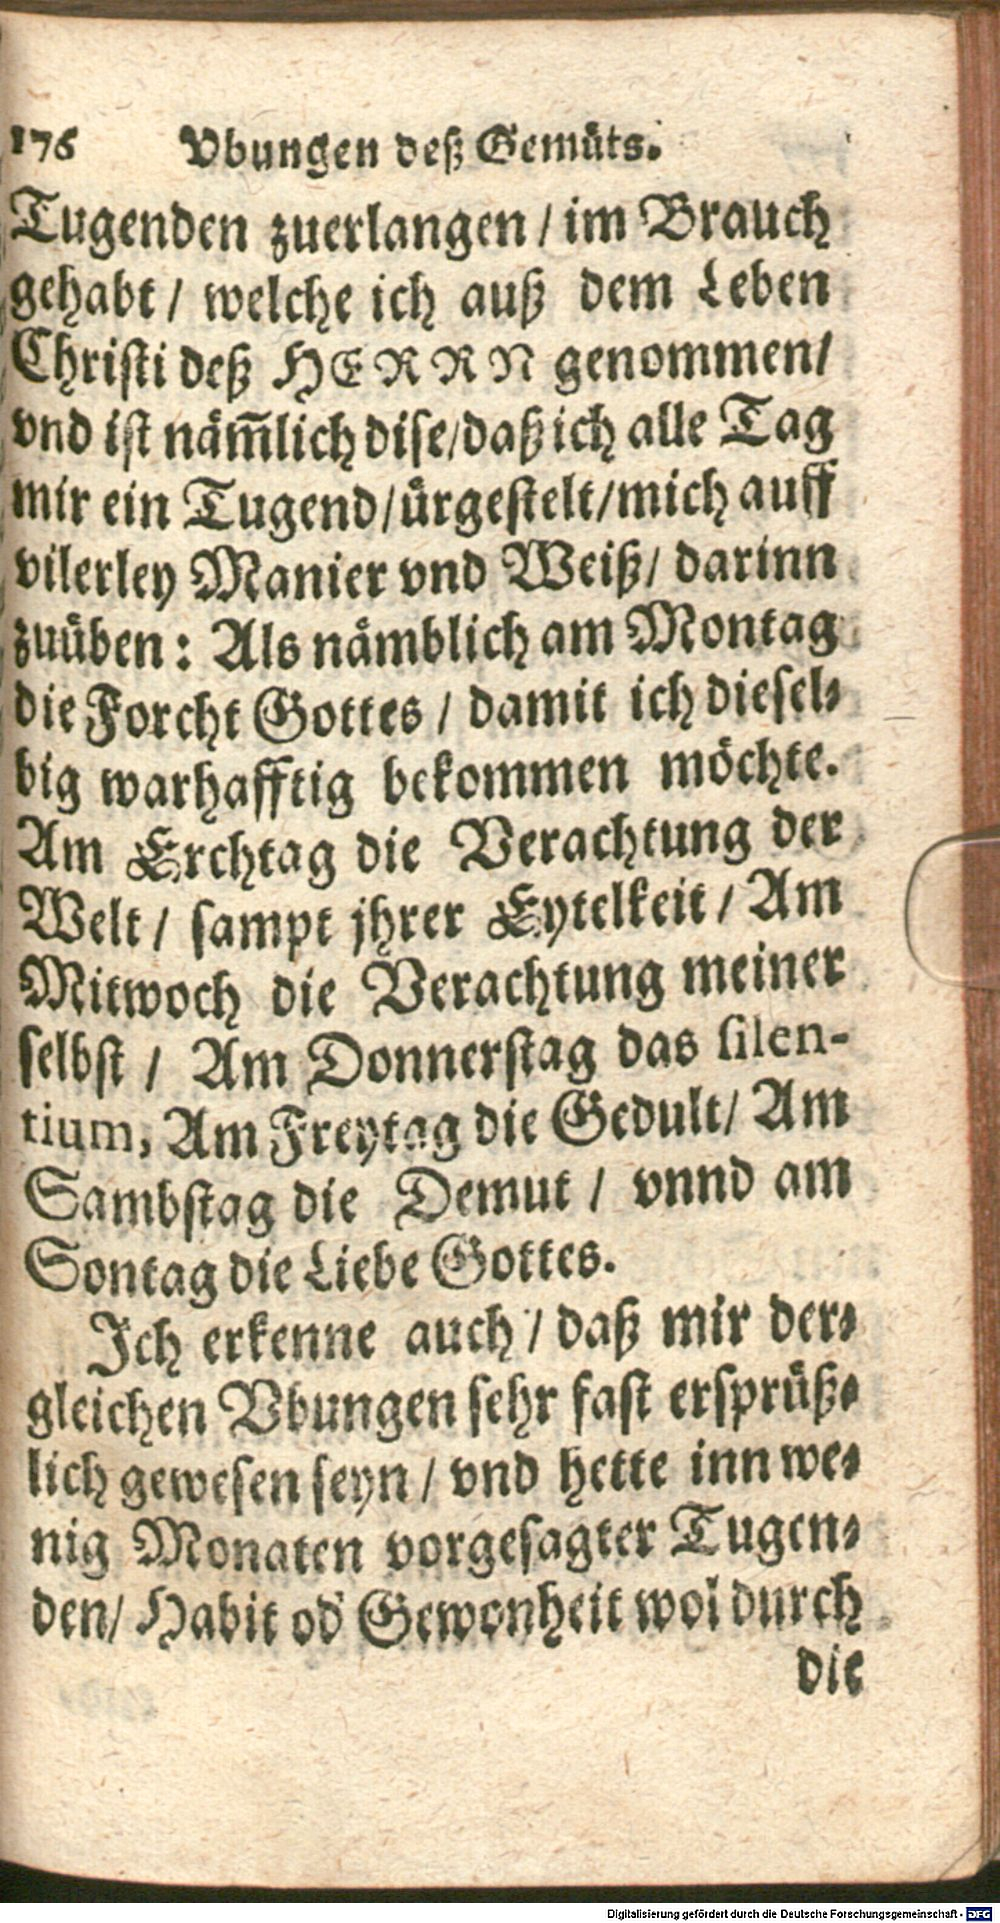 176 Vbungen deß Gemüts.
Tugenden zuerlangen / im Brauch
gehabt / welche ich auß dem Leben
Christi deß HERRN genommen/
vnd ist näm̅lich dise/daß ich alle Tag
mir ein Tugend/ürgestelt/mich auff
vilerley Manier vnd Weiß/ darinn
zuüben: Als nämblich am Montag
die Forcht Gottes / damit ich diesel-
big warhafftig bekommen möchte.
Am Erchtag die Verachtung der
Welt / sampt jhrer Eytelkeit / Am
Mitwoch die Verachtung meiner
selbst / Am Donnerstag das silen-
tium, Am Freytag die Gedult/ Am
Sambstag die Demut / vnnd am
Sontag die Liebe Gottes.
Ich erkenne auch / daß mir der-
gleichen Vbungen sehr fast ersprüß-
lich gewesen seyn / vnd hette inn we-
nig Monaten vorgesagter Tugen-
den/ Habit od' Gewonheit wol durch
die
Digitalisierung gefördert durch die Deutsche Forschungsgemeinschaft - DFG